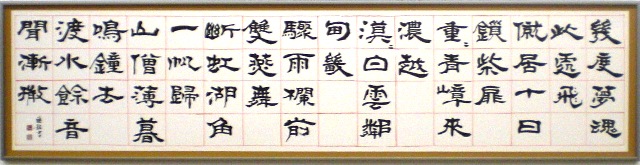 幾度夢魂
此處飛
僦居十日
鎖柴扉
重々青嶂來
濃越
漠々白雲鄰
甸畿
驟雨欄前
雙燕舞
斷虹湖角
一帆歸
山僧薄暮
鳴鐘去
渡水餘音
聞漸微